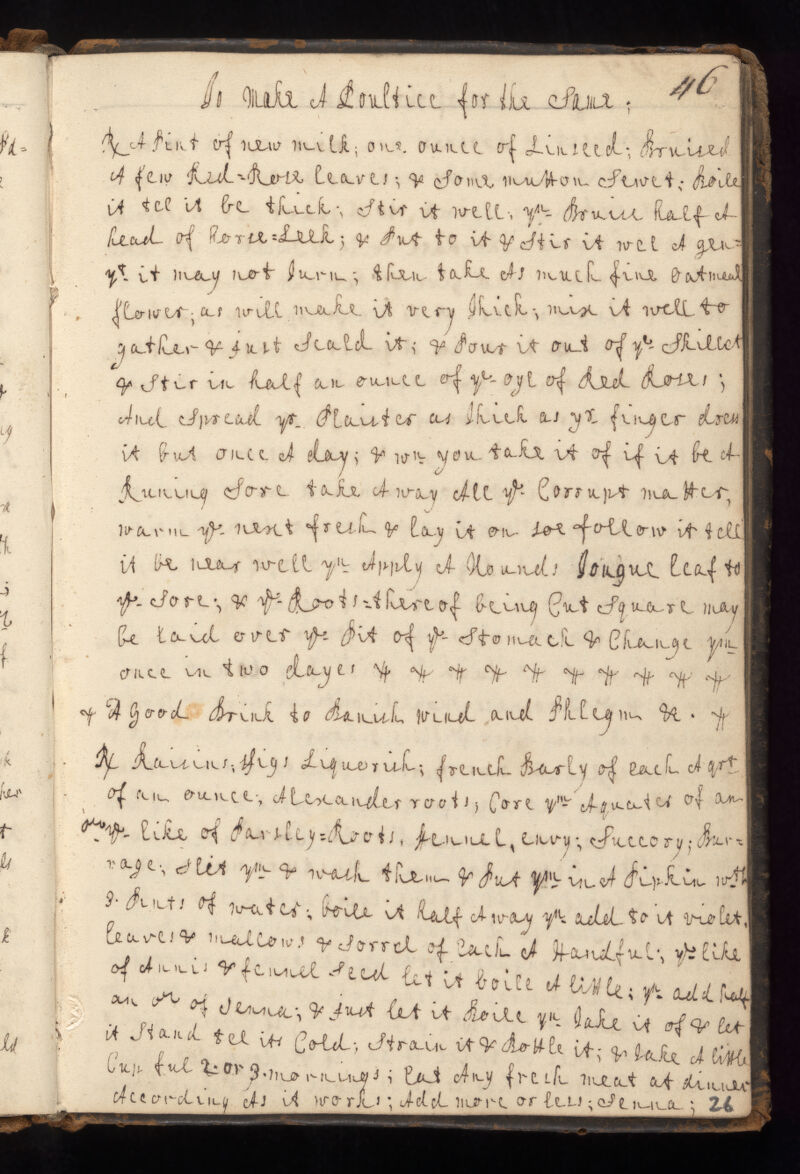 46
To Make A Poultice for the Same;
℞ A Pint of new milk; one ounce of Linseed; Bruised
A few Red=Rose leaves; & Some mutton Sewet; Boile
it tel it be thick; Stir it well, yn Bruise half A
head of horse=Leek; & Put to it & Stir it wel A gen=
yt it may not Turn; then take As much fine Oatmeal
flower; as will make it very Thick; mix it well to
gather & just Scald it; & Pour it out of ye Skillet
& Stir in half an ounce of ye oyl of Red Roses;
And Spread yr Plaister as Thick as yr finger dress
it but once A day; & wn you take it of if it be A
Runing Sore take Away All ye Corrupt matter,
warm ye next fresh & lay it on soe follow it tell
it be near well yn Apply A Hounds Tongue leaf to
ye Sore; & ye Roots=thereof being Cut Square may
be laid over ye Pit of ye Stomack & Change ym
once in two dayes
A Good Drink to Banish wind and Phlegm &c.
℞ Raisins; figs Liquorish; french Barly of each A qrt
of an ounce; Alexander roots; Core ym A quater of an
ounc ye like of Parsley=Roots, fennel, envy; Succory; Bur=
rage; Slit ym & wash them & Put ym in A Pipkin wth
3 Pints of water; boile it half Away yn add to it violet,
leaves & mallows & Sorrel of Each A Handful; ye like
of Annis & fennel Seed let it boile A little; yn add half
an oun of Senna; & just let it Boile yn Take it of & let
it Stand tel its Cold; Strain it & Bottle it; & Take A little
Cup ful 2 or 3 mornings; Eat Any fresh meat at dinner
According As it works; Add more or less; Senna;
26